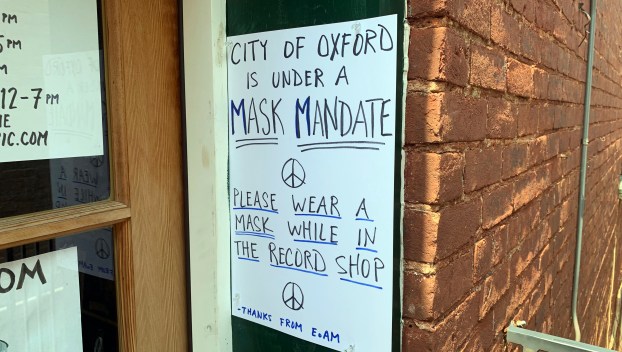 PM
5 PM
PM
12-7 PM
NE
VIC.COM
OM
CITY OF OXFORD
IS UNDER A
MASK MANDATE
PLEASE WEAR A
MASK WHILE IN
THE RECORD SHOP
-THANKS FROM E.AM